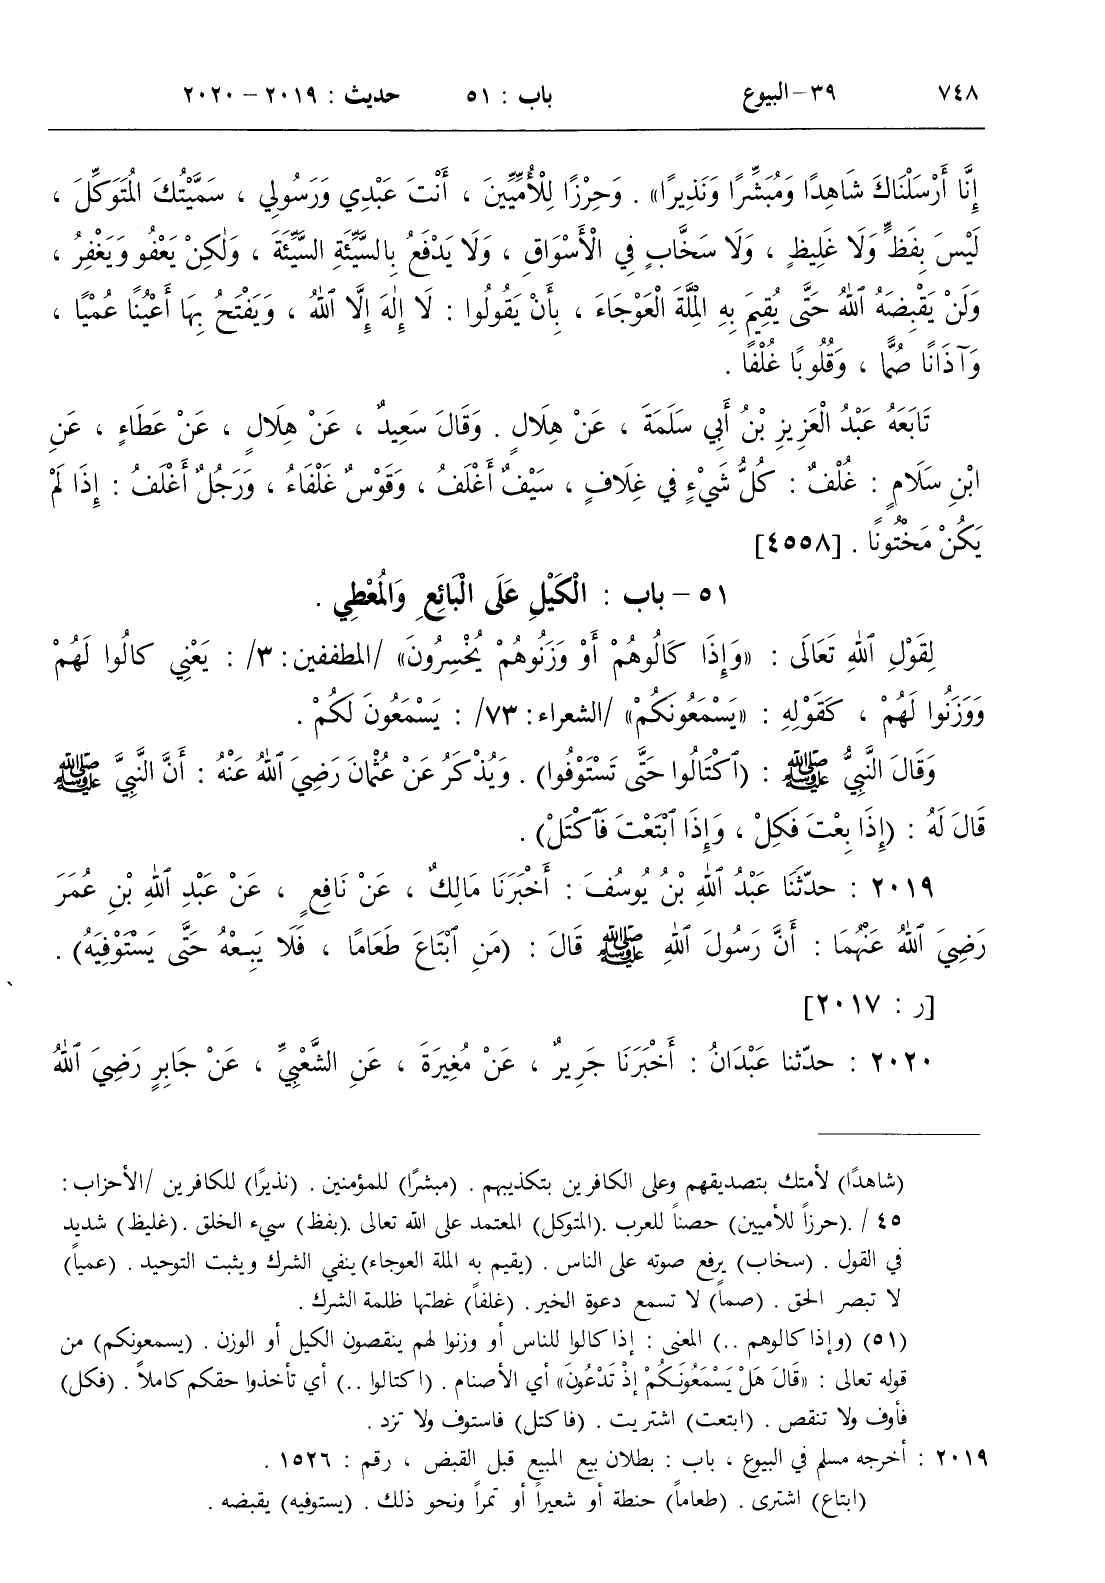 ٧٤٨ ٣٩-البيوع باب : ٥١ حديث : ٢٠١٩ – ٢٠٢٠
إِنَّا أَرْسَلْنَاكَ شَاهِدًا وَمُبَشِّرًا وَنَذِيرًا» . وَحِرْزًا لِلْأُمِّيِّينَ ، أَنْتَ عَبْدِي وَرَسُولِي ، سَمَّيْتُكَ الْمُتَوَكِّلَ ،
لَيْسَ بِفَظٍّ وَلَا غَلِيظٍ ، وَلَا سَخَّابٍ فِي الْأَسْوَاقِ ، وَلَا يَدْفَعُ بِالسَّيِّئَةِ السَّيِّئَةَ ، وَلٰكِنْ يَعْفُو وَيَغْفِرُ ،
وَلَنْ يَقْبِضَهُ ٱللهُ حَتَّى يُقِيمَ بِهِ الْمِلَّةَ الْعَوْجَاءَ ، بِأَنْ يَقُولُوا : لَا إِلٰهَ إِلَّا ٱللهُ ، وَيَفْتَحُ بِهَا أَعْيُنًا عُمْيًا ،
وَآذَانًا صُمًّا ، وَقُلُوبًا غُلْفًا .
تَابَعَهُ عَبْدُ الْعَزِيزِ بْنُ أَبِي سَلَمَةَ ، عَنْ هِلَالٍ . وَقَالَ سَعِيدٌ ، عَنْ هِلَالٍ ، عَنْ عَطَاءٍ ، عَنِ
ابْنِ سَلَامٍ : غُلْفٌ : كُلُّ شَيْءٍ فِي غِلَافٍ ، سَيْفٌ أَغْلَفُ ، وَقَوْسٌ غَلْفَاءُ ، وَرَجُلٌ أَغْلَفُ : إِذَا لَمْ
يَكُنْ مَخْتُونًا . [٤٥٥٨]
٥١ – باب : الْكَيْلِ عَلَى الْبَائِعِ وَالْمُعْطِي .
لِقَوْلِ ٱللهِ تَعَالَى : «وَإِذَا كَالُوهُمْ أَوْ وَزَنُوهُمْ يُخْسِرُونَ» /المطففين: ٣/ : يَعْنِي كالُوا لَهُمْ
وَوَزَنُوا لَهُمْ ، كَقَوْلِهِ : «يَسْمَعُونَكُمْ» /الشعراء: ٧٣/ : يَسْمَعُونَ لَكُمْ .
وَقَالَ النَّبِيُّ ﷺ : (ٱكْتَالُوا حَتَّى تَسْتَوْفُوا) . وَيُذْكَرُ عَنْ عُثْمَانَ رَضِيَ ٱللهُ عَنْهُ : أَنَّ النَّبِيَّ ﷺ
قَالَ لَهُ : (إِذَا بِعْتَ فَكِلْ ، وَإِذَا ٱبْتَعْتَ فَٱكْتَلْ) .
٢٠١٩ : حدّثَنَا عَبْدُ ٱللهِ بْنُ يُوسُفَ : أَخْبَرَنَا مَالِكٌ ، عَنْ نَافِعٍ ، عَنْ عَبْدِ ٱللهِ بْنِ عُمَرَ
رَضِيَ ٱللهُ عَنْهُمَا : أَنَّ رَسُولَ ٱللهِ ﷺ قَالَ : (مَنِ ٱبْتَاعَ طَعَامًا ، فَلَا يَبِعْهُ حَتَّى يَسْتَوْفِيَهُ) .
[ر : ٢٠١٧]
٢٠٢٠ : حدّثنا عَبْدَانُ : أَخْبَرَنَا جَرِيرٌ ، عَنْ مُغِيرَةَ ، عَنِ الشَّعْبِيِّ ، عَنْ جَابِرٍ رَضِيَ ٱللهُ
(شاهدًا) لأمتك بتصديقهم وعلى الكافرين بتكذيبهم . (مبشرًا) للمؤمنين . (نذيرًا) للكافرين /الأحزاب:
٤٥ / .(حرزاً للأميين) حصناً للعرب .(المتوكل) المعتمد على الله تعالى .(بفظ) سيء الخلق .(غليظ) شديد
في القول . (سخاب) يرفع صوته على الناس . (يقيم به الملة العوجاء) ينفي الشرك ويثبت التوحيد . (عمياً)
لا تبصر الحق . (صماً) لا تسمع دعوة الخير . (غلفاً) غطتها ظلمة الشرك .
(٥١) (وإذا كالوهم ..) المعنى : إذا كالوا للناس أو وزنوا لهم ينقصون الكيل أو الوزن . (يسمعونكم) من
قوله تعالى : «قَالَ هَلْ يَسْمَعُونَكُمْ إِذْ تَدْعُونَ» أي الأصنام . (اكتالوا ..) أي تأخذوا حقكم كاملاً . (فكل)
فأوف ولا تنقص . (ابتعت) اشتريت . (فاكتل) فاستوف ولا تزد .
٢٠١٩ : أخرجه مسلم في البيوع ، باب : بطلان بيع المبيع قبل القبض ، رقم : ١٥٢٦ .
(ابتاع) اشترى . (طعاماً) حنطة أو شعيراً أو تمراً ونحو ذلك . (يستوفيه) يقبضه .